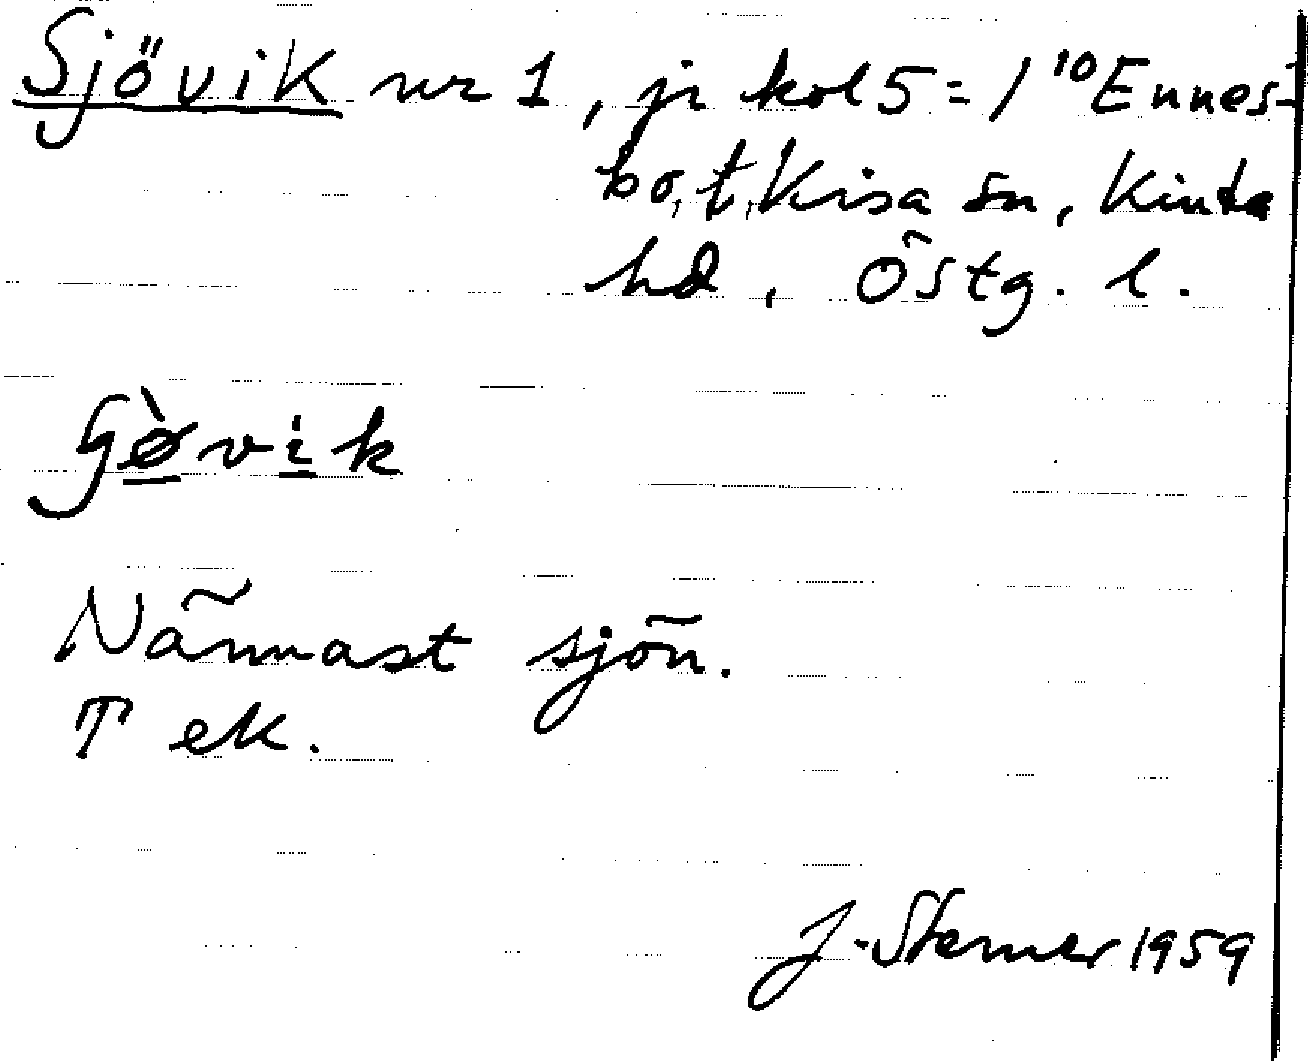 Sjövik nr 1, jr kol 5 = 1 10 Ennes-
bo, t. Kisa sn, Kinda
hd, Östg. l.
Närmast sjön.
T ek.
J. Sterner 1959